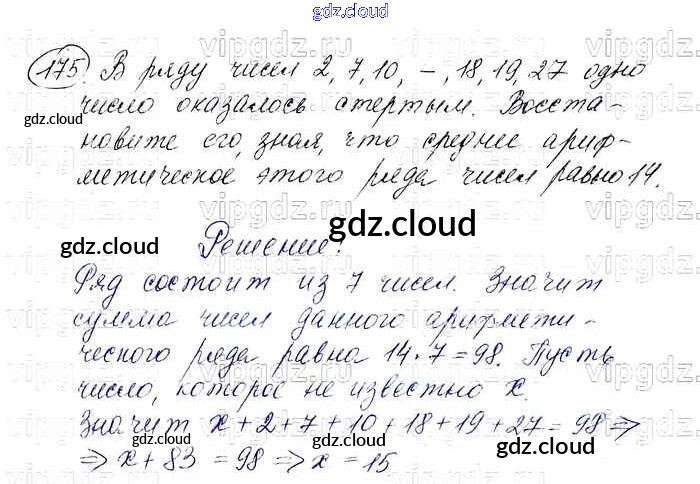 gdz.cloud
175. В ряду чисел 2, 7, 10, –, 18, 19, 27 одно
число оказалось стертым. Восста-
новите его, зная, что среднее ариф-
метическое этого ряда чисел равно 14.
gdz.cloud
Решение:
Ряд состоит из 7 чисел. Значит
сумма чисел данного арифмети-
ческого ряда равна 14 · 7 = 98. Пусть
число, которое не известно x.
Значит x + 2 + 7 + 10 + 18 + 19 + 27 = 98 ⇒
⇒ x + 83 = 98 ⇒ x = 15